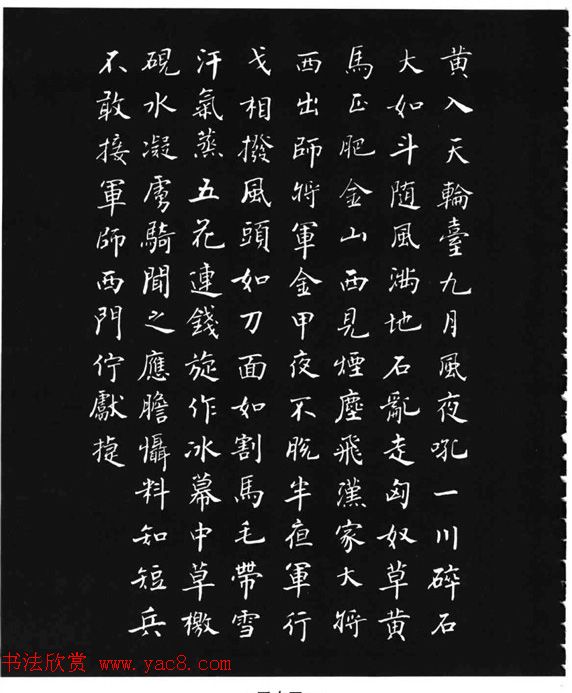 黄入天輪臺九月風夜吼一川碎石
大如斗随風满地石亂走匈奴草黄
馬正肥金山西見煙塵飛漢家大將
西出師將軍金甲夜不脱半夜軍行
戈相撥風頭如刀面如割馬毛帶雪
汗氣蒸五花連錢旋作冰幕中草檄
硯水凝虜騎聞之應膽懾料知短兵
不敢接軍師西門佇獻捷
书法欣赏 www.yac8.com